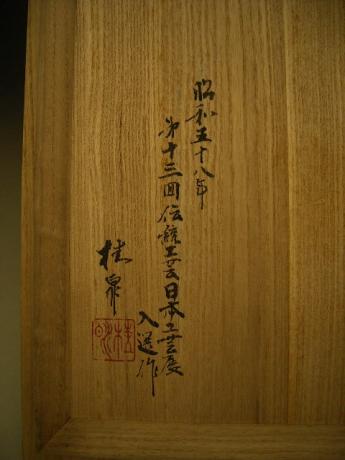 昭和五十八年
第十三回伝統工芸日本工芸展
入選作
桂泉